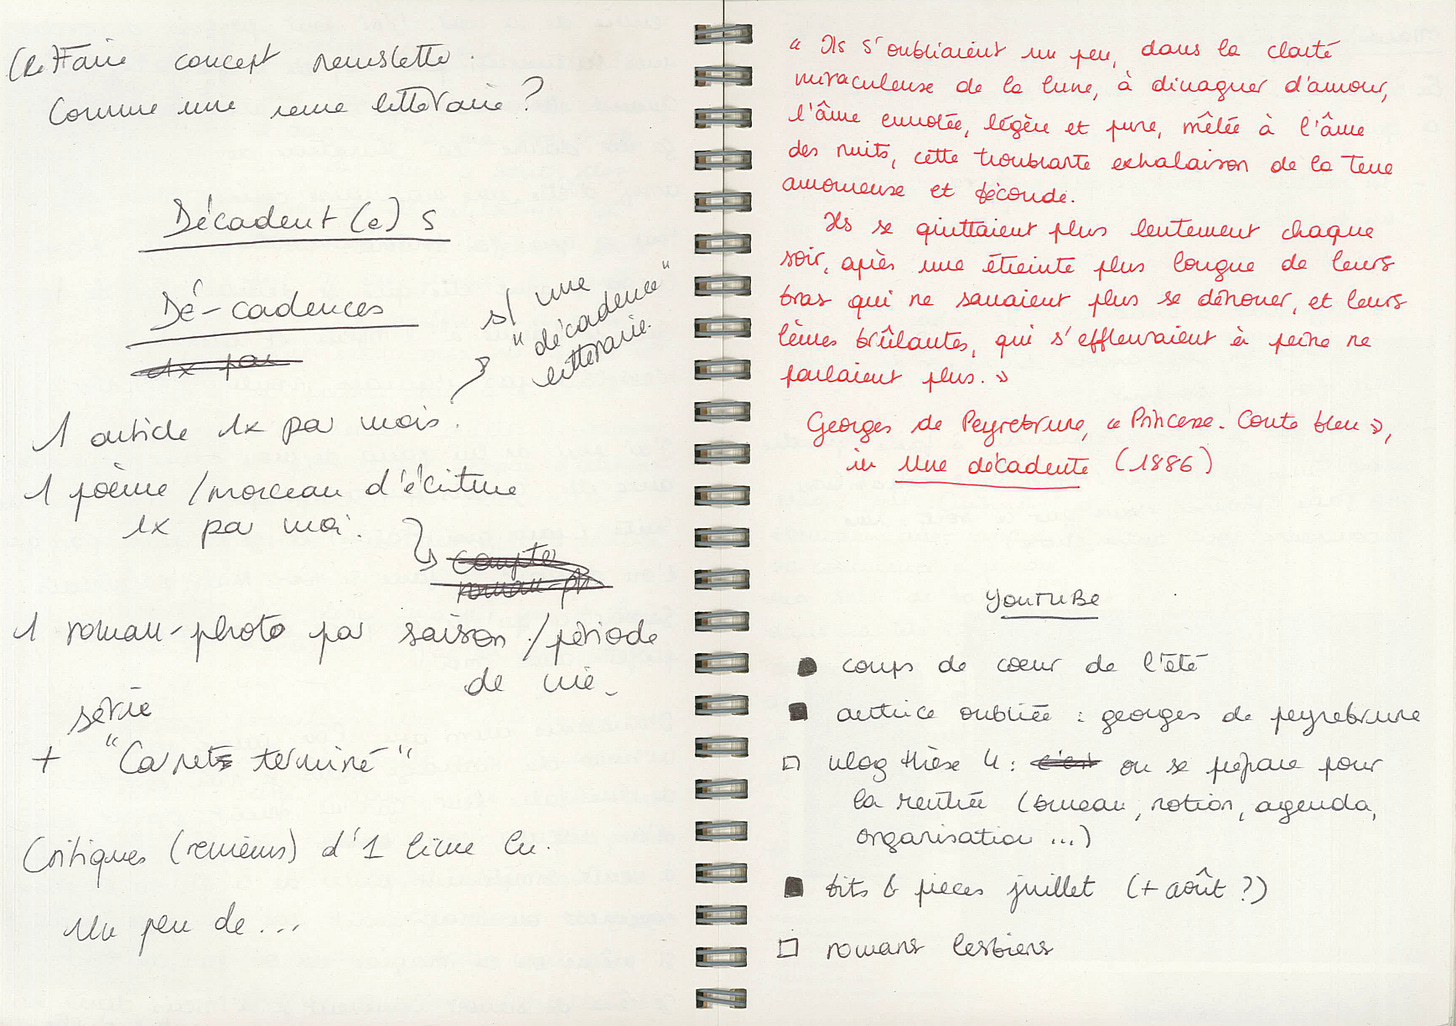 (Re)Faire concept newsletter.
Comme une revue littéraire ?
Décadent(e)s
Dé-cadences
1x par
s/ une
"décadence"
littéraire.
1 article 1x par mois.
1 poème / morceau d'écriture
1x par moi.
compte
roman-ph
1 roman-photo par saison / période
de vie.
série
+ "Carnets terminé"
Critiques (reviews) d'1 livre lu.
Un peu de...
« Ils s'oubliaient un peu, dans la clarté
miraculeuse de la lune, à divaguer d'amour,
l'âme envolée, légère et pure, mêlée à l'âme
des nuits, cette troublante exhalaison de la terre
amoureuse et féconde.
Ils se quittaient plus lentement chaque
soir, après une étreinte plus longue de leurs
bras qui ne savaient plus se dénouer, et leurs
lèvres brûlantes, qui s'effleuraient à peine ne
parlaient plus. »
Georges de Peyrebrune, « Princesse. Conte bleu »,
in Une décadente (1886)
YOUTUBE
coups de cœur de l'été
autrice oubliée : georges de peyrebrune
vlog thèse 4 : c'est on se prépare pour
la rentrée (bureau, notion, agenda,
organisation ...)
bits & pieces juillet (+ août ?)
romans lesbiens